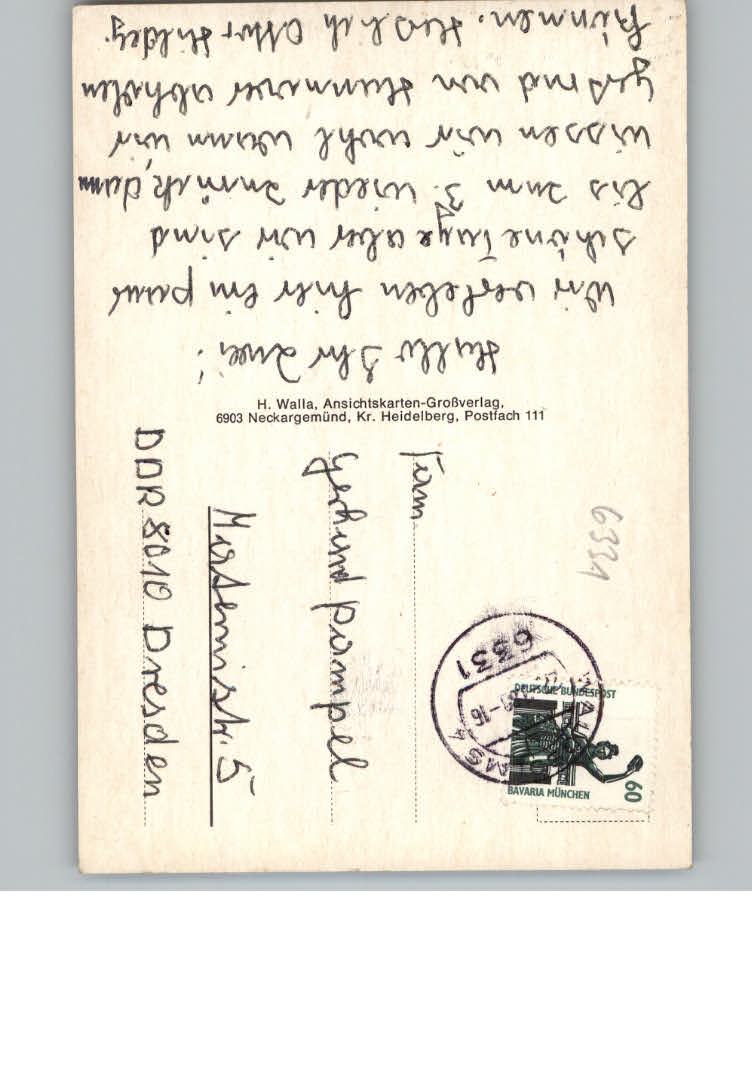 Hallo Ihr Zwei!
Wir verleben hier ein paar
schöne Tage aber wir sind
bis zum 3. wieder zurück, dann
wissen wir wohl wann wir
Gerd von Hannover abholen
können. Herzlich Hilde
H. Walla, Ansichtskarten-Großverlag,
6903 Neckargemünd, Kr. Heidelberg, Postfach 111
Fam
Gerhard Pampel
Str. 5
DDR 8010 Dresden
6331
6331
DEUTSCHE BUNDESPOST
BAVARIA MÜNCHEN
60